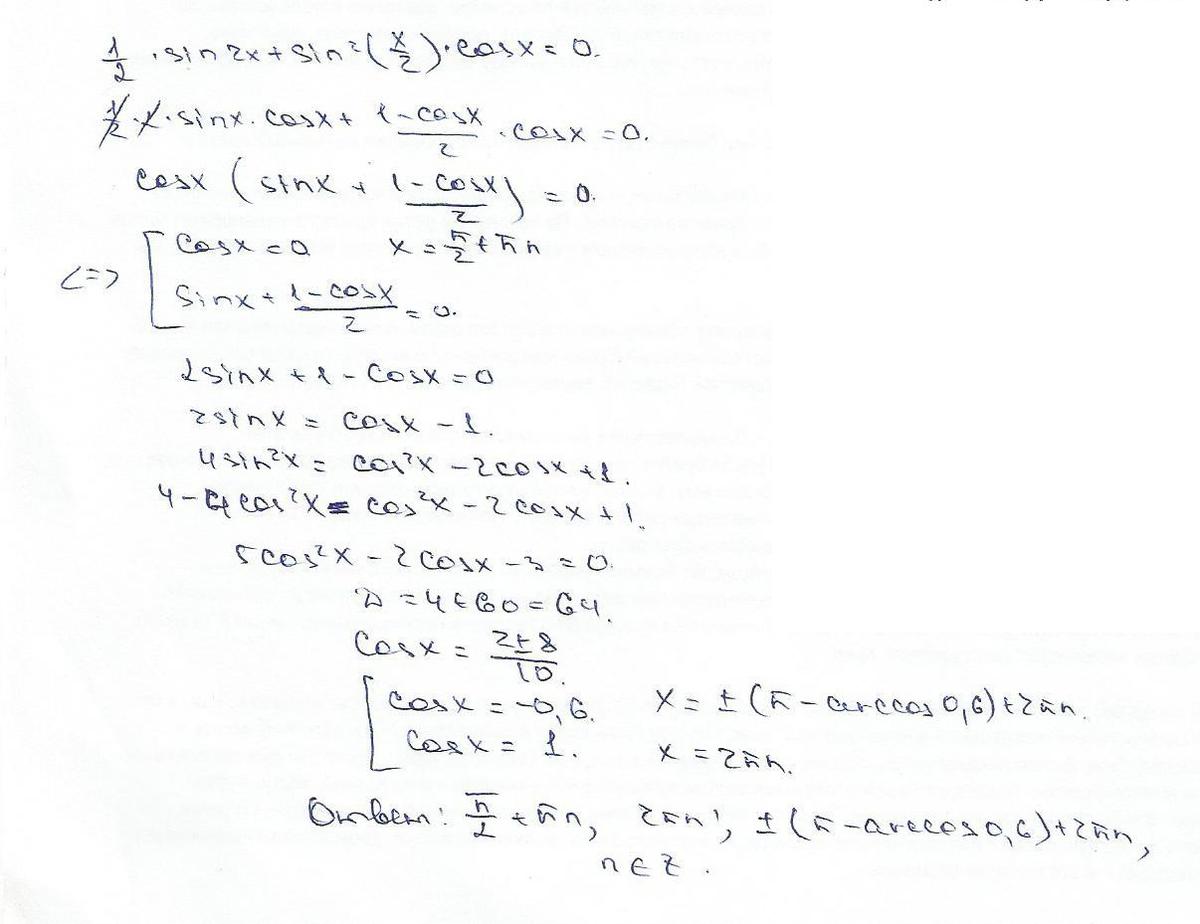 1/2 · sin 2x + sin²(x/2) · cosx = 0.
1/2 · 2 · sinx · cosx + (1 - cosx)/2 · cosx = 0.
cosx (sinx + (1 - cosx)/2) = 0.
<=> [ cosx = 0 x = π/2 + πn
sinx + (1 - cosx)/2 = 0.
2sinx + 1 - cosx = 0
2sinx = cosx - 1.
4sin²x = cos²x - 2cosx + 1.
4 - 4cos²x = cos²x - 2cosx + 1.
5cos²x - 2cosx - 3 = 0.
D = 4 + 60 = 64.
cosx = (2 ± 8)/10.
[ cosx = -0,6. x = ±(π - arccos 0,6) + 2πn.
cosx = 1. x = 2πn.
Ответ: π/2 + πn, 2πn, ±(π - arccos 0,6) + 2πn,
n ∈ Z.